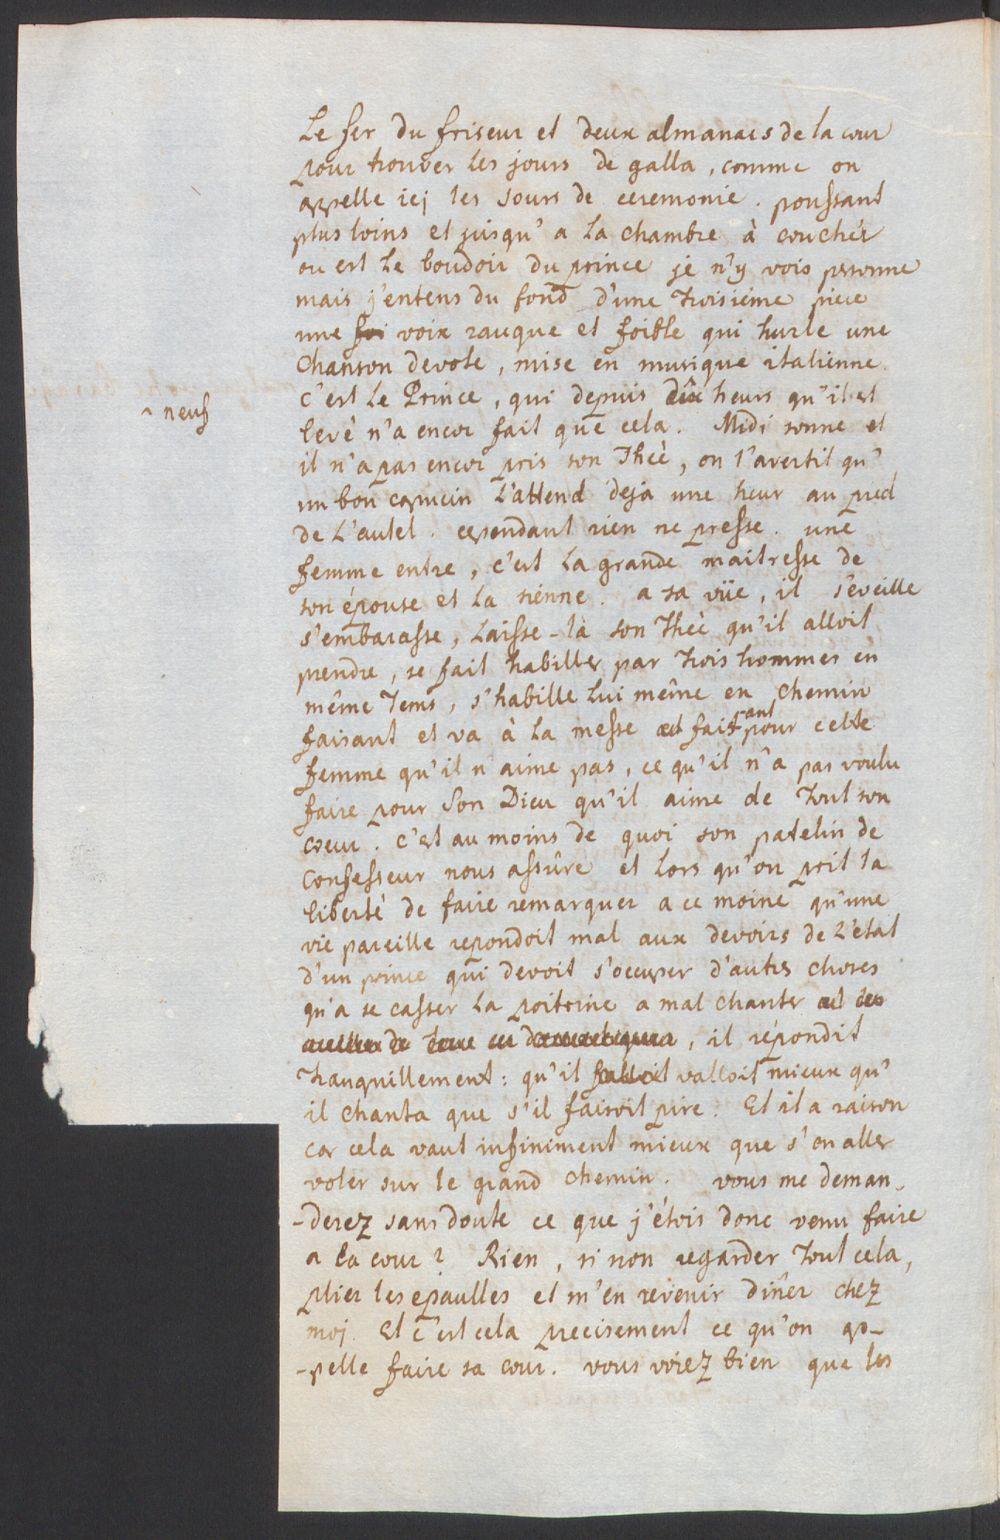 Le fer du friseur et deux almanacs de la cour
pour trouver les jours de galla, comme on
appelle icj les Jours de ceremonie. poussant
plus loins et jusqu'a la chambre à couchér
ou est le boudoir du prince je n'y vois personne
mais j'entens du fond d'une troisiéme piece
une foi voix rauque et foible qui hurle une
Chanson devote, mise en musique italienne.
C'est Le Prince, qui depuis dix heurs qu'il est
^ neuf
levé n'a encor fait que cela. Midi sonne et
il n'a pas encor pris son Theè, on l'avertit qu'
un bon capucin l'attend deja une heur au pied
de L'autel. cependant rien ne presse. une
femme entre, c'est la grande maitresse de
son épouse et la siénne. a sa vüe, il s'eveille
s'embarasse, Laisse-là son Theè qu'il alloit
prendre, se fait habiller par trois hommes en
même tems, s'habille lui même en chemin
faisant et va à la messe et faitant pour cette
femme qu'il n'aime pas, ce qu'il n'a pas voulu
faire pour Son Dieu qu'il aime de tout son
coeur. C'est au moins de quoi son patelin de
Confesseur nous assûre et Lors qu'on prit la
liberté de faire remarquer a ce moine qu'une
vie pareille repondoit mal aux devoirs de L'état
d'un prince qui devoit s'occuper d'autres choses
qu'a se casser la poitrine a mal chanter et les
oreilles de tous ses domestiques, il répondit
tranquillement: qu'il falloit valloit mieux qu'
il chanta que s'il faisoit pire. Et il a raison
car cela vaut infiniment mieux que s'en aller
voler sur le grand chemin. vous me deman-
-derez sans doute ce que j'étois donc venu faire
a la cour? Rien, si non regarder tout cela,
plier les epaulles et m'en revenir dîner chez
moj. Et c'est cela precisement ce qu'on ap-
-pelle faire sa cour. vous voiez bien que les